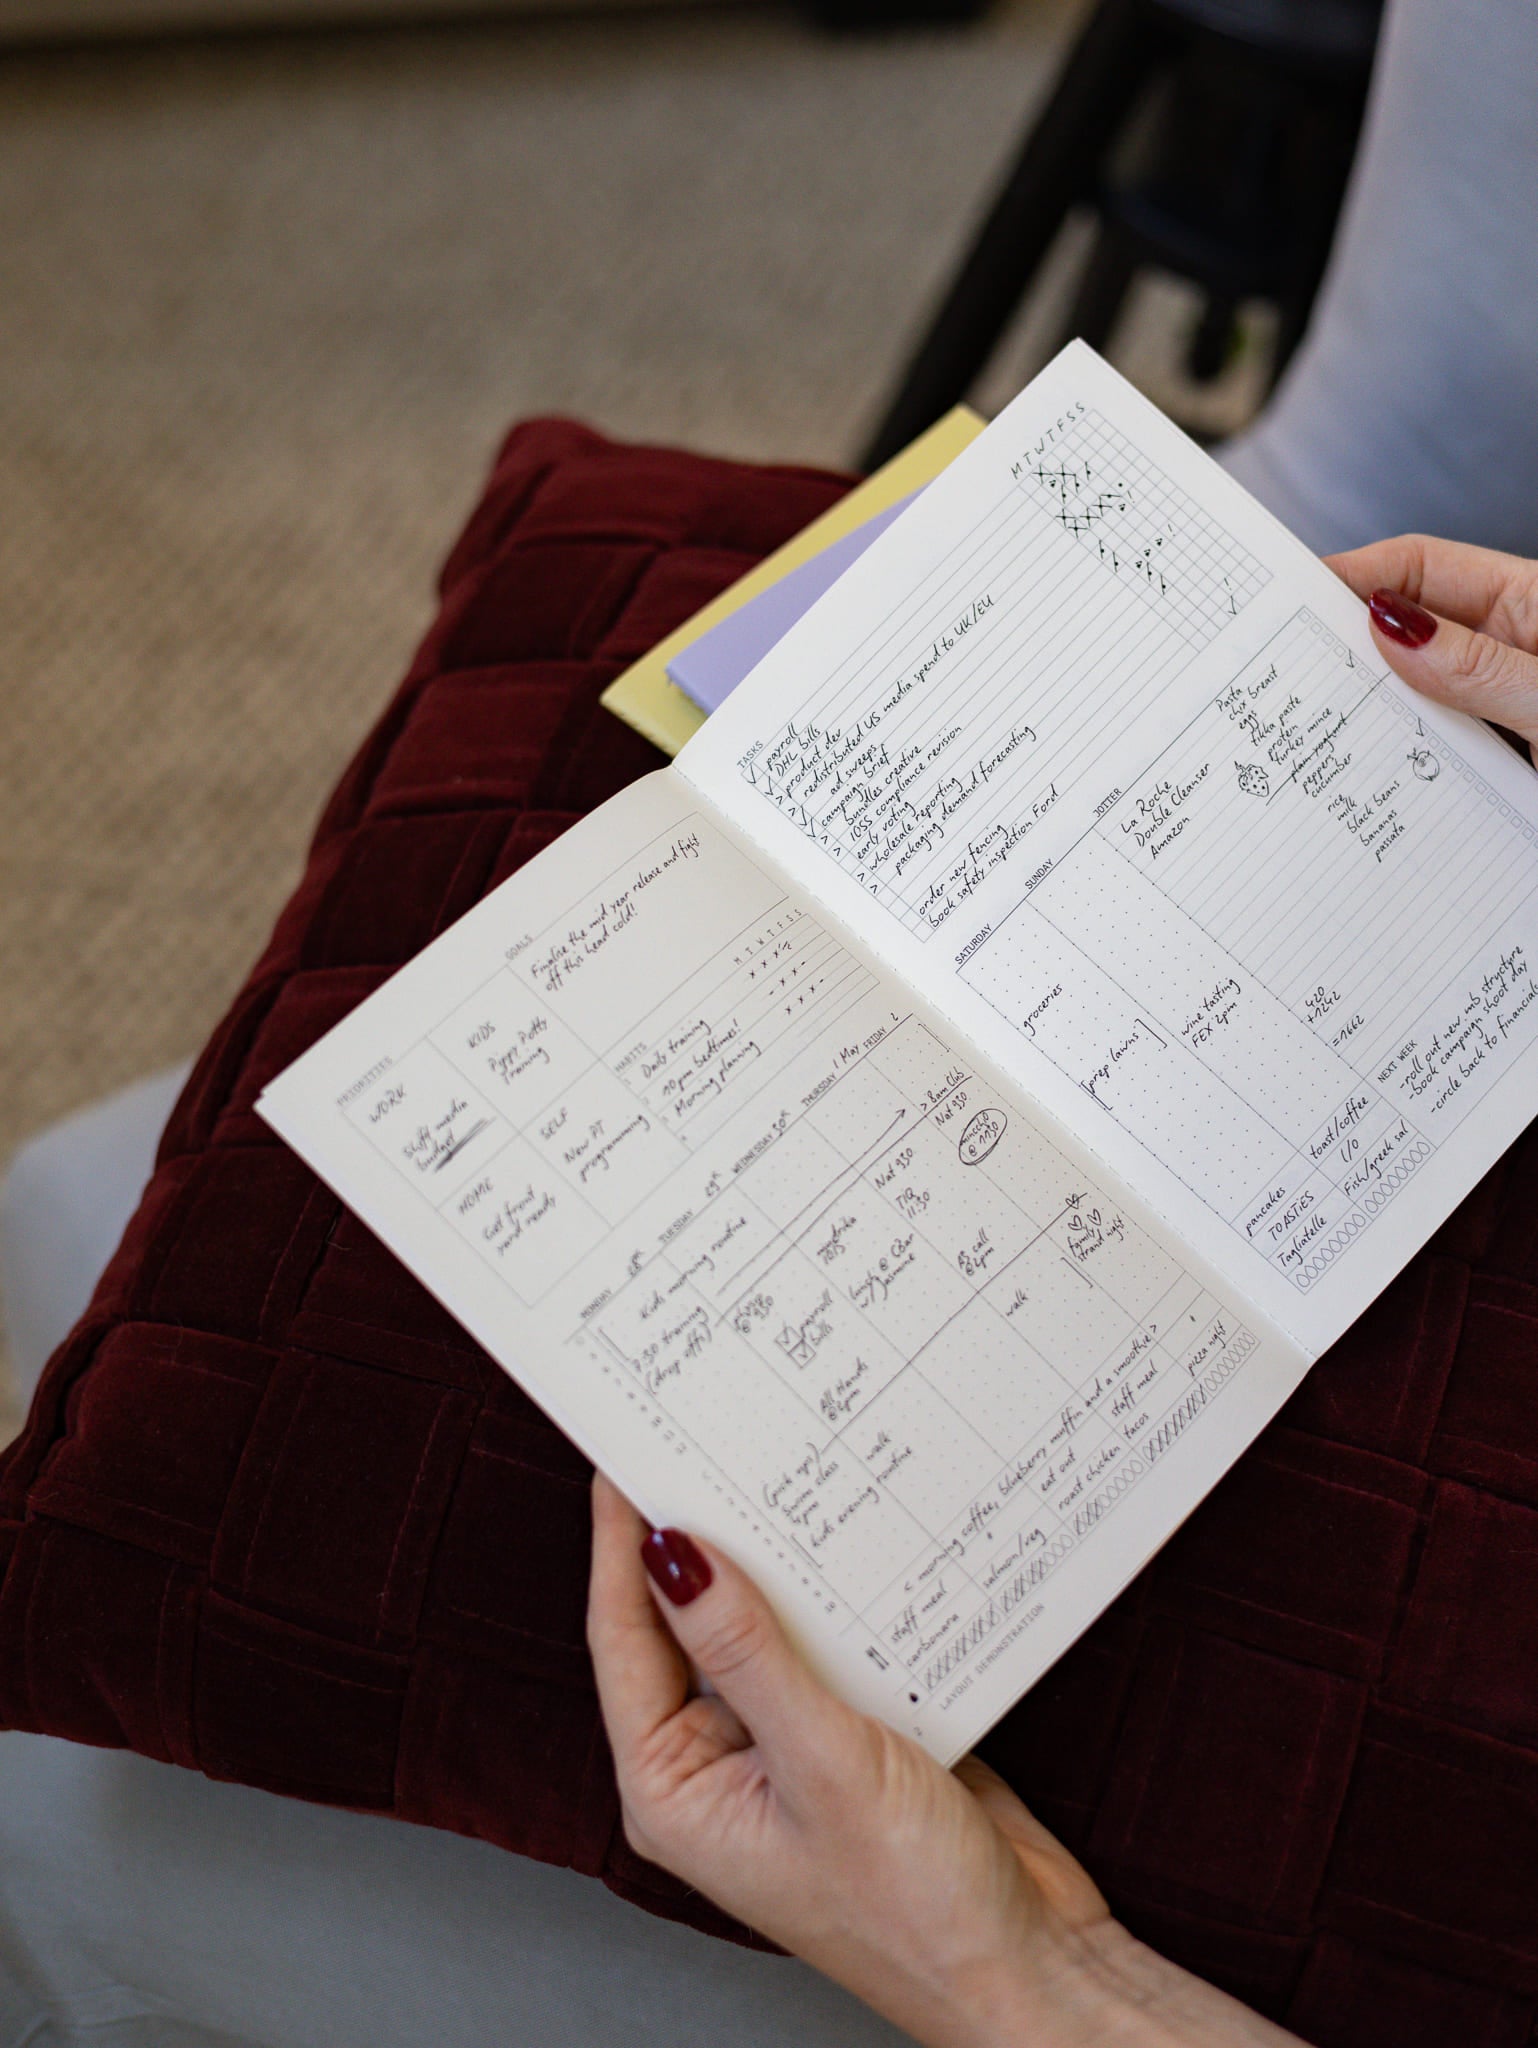 PRIORITIES
WORK
Shift media
budget
KIDS
Piggy Potty
Training
HOME
Get front
yard ready
SELF
New PT
programming
GOALS
Finalise the mid year release and fight
off this head cold!
HABITS
M T W T F S S
1 Daily training
2 10pm bedtimes!
3 Morning planning
MONDAY 28th
TUESDAY 29th
WEDNESDAY 30th
THURSDAY 1 May
FRIDAY 2
Kids morning routine
7:30 training
(drop offs)
@ 930
payroll
bills
All Hands
@ 2pm
(pick ups)
Swim class
4pm
walk
Kids evening routine
1015
lunch @ CBar
w/ Jasmine
Nat 930
TIR
11:30
AS call
@ 2pm
walk
> 8am Club
Nat 930
@ 1130
family
strand night
< morning coffee, blueberry muffin and a smoothie >
staff meal
"
eat out
staff meal
"
carbonara
salmon/veg
roast chicken
tacos
pizza night
2
LAYOUT DEMONSTRATION
M T W T F S S
TASKS
payroll
DHL bills
product dev
redistributed US media spend to UK/EU
ad sweeps
campaign brief
bundles creative
IOSS compliance revision
early voting
wholesale reporting
packaging demand forecasting
order new fencing
book safety inspection Ford
SATURDAY
groceries
[prep lawns]
SUNDAY
wine tasting
FEX 2pm
pancakes
TOASTIES
Tagliatelle
toast/coffee
L/O
Fish/greek sal
JOTTER
La Roche
Double Cleanser
Amazon
Pasta
chx breast
eggs
tikka paste
protein
turkey mince
plain yoghurt
peppers
cucumber
rice
milk
black beans
bananas
passata
420
+1242
=1662
NEXT WEEK
-roll out new mb structure
-book campaign shoot day
-circle back to financials